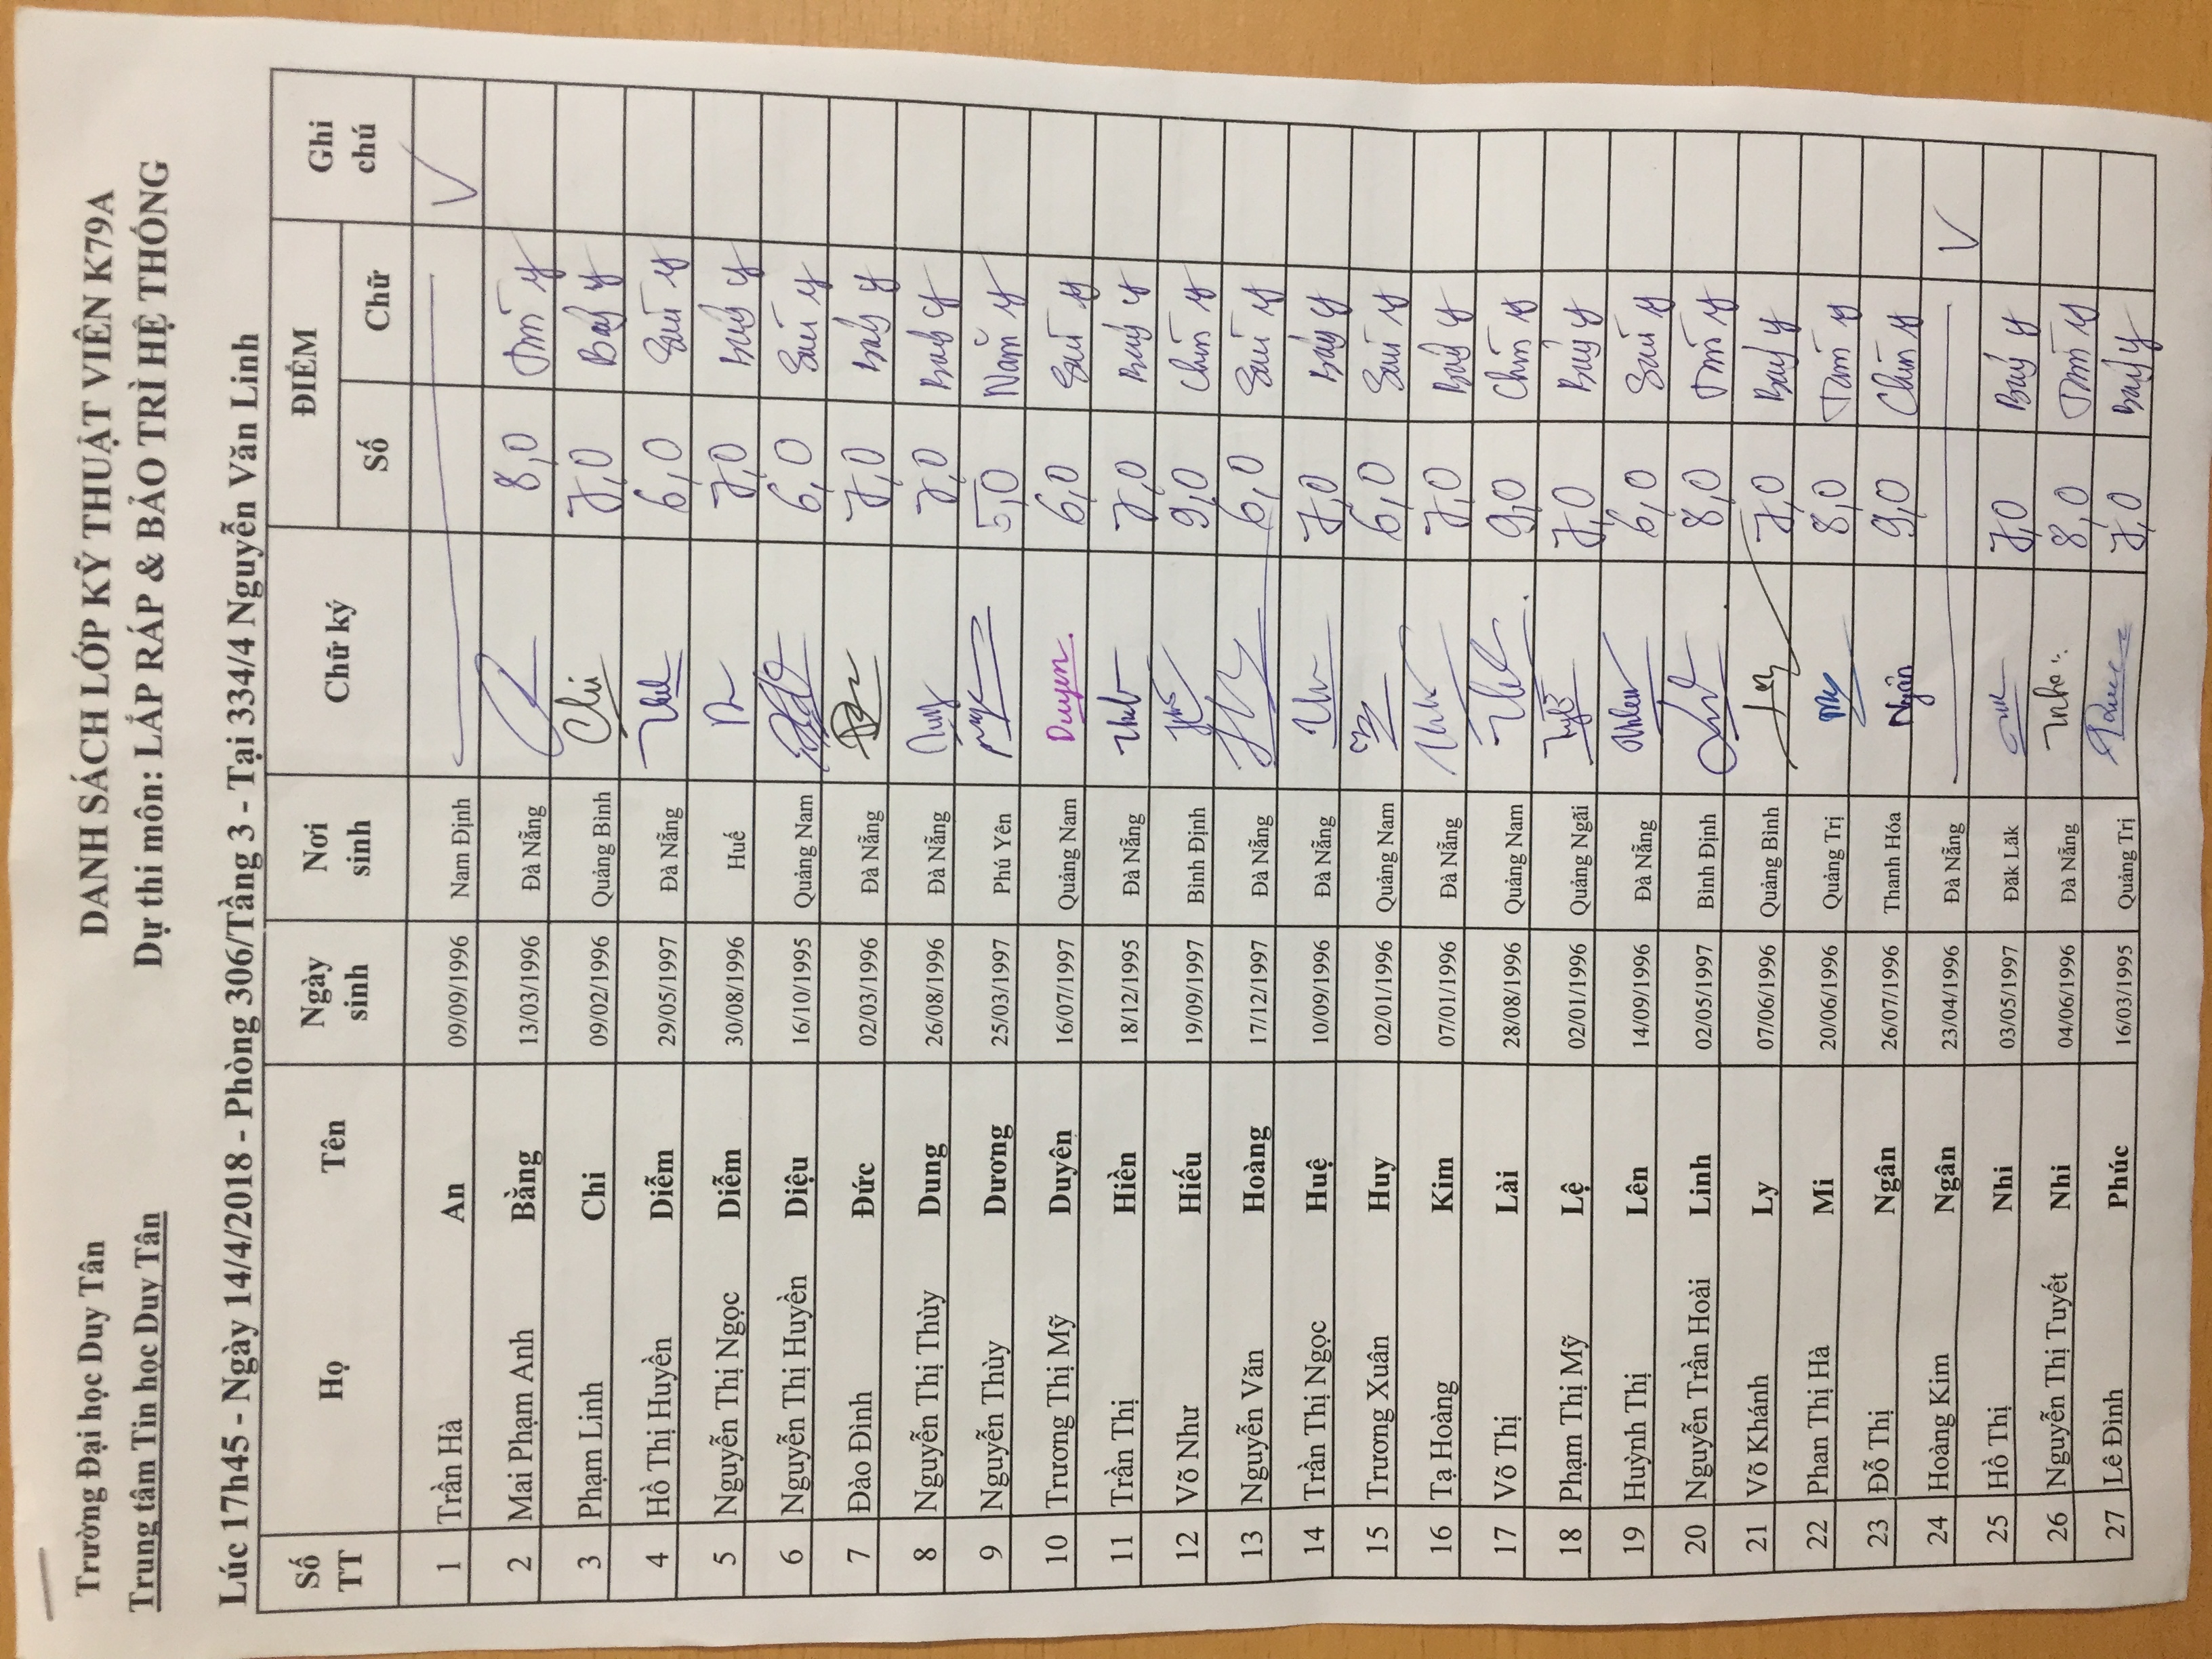 Trường Đại học Duy Tân
Trung tâm Tin học Duy Tân
DANH SÁCH LỚP KỸ THUẬT VIÊN K79A
Dự thi môn: LẮP RÁP & BẢO TRÌ HỆ THỐNG
Lúc 17h45 - Ngày 14/4/2018 - Phòng 306/Tầng 3 - Tại 334/4 Nguyễn Văn Linh
Số TT Họ Tên Ngày sinh Nơi sinh Chữ ký ĐIỂM Ghi chú
Số Chữ
1 Trần Hà An 09/09/1996 Nam Định V
2 Mai Phạm Anh Bằng 13/03/1996 Đà Nẵng 8,0 Tám
3 Phạm Linh Chi 09/02/1996 Quảng Bình Chi 7,0 Bảy
4 Hồ Thị Huyền Diễm 29/05/1997 Đà Nẵng 6,0 Sáu
5 Nguyễn Thị Ngọc Diễm 30/08/1996 Huế 7,0 Bảy
6 Nguyễn Thị Huyền Diệu 16/10/1995 Quảng Nam 6,0 Sáu
7 Đào Đình Đức 02/03/1996 Đà Nẵng 7,0 Bảy
8 Nguyễn Thị Thùy Dung 26/08/1996 Đà Nẵng 7,0 Bảy
9 Nguyễn Thùy Dương 25/03/1997 Phú Yên 5,0 Năm
10 Trương Thị Mỹ Duyên 16/07/1997 Quảng Nam Duyen 6,0 Sáu
11 Trần Thị Hiền 18/12/1995 Đà Nẵng 7,0 Bảy
12 Võ Như Hiếu 19/09/1997 Bình Định 9,0 Chín
13 Nguyễn Văn Hoàng 17/12/1997 Đà Nẵng 6,0 Sáu
14 Trần Thị Ngọc Huệ 10/09/1996 Đà Nẵng 7,0 Bảy
15 Trương Xuân Huy 02/01/1996 Quảng Nam 6,0 Sáu
16 Tạ Hoàng Kim 07/01/1996 Đà Nẵng 7,0 Bảy
17 Võ Thị Lài 28/08/1996 Quảng Nam 9,0 Chín
18 Phạm Thị Mỹ Lệ 02/01/1996 Quảng Ngãi 7,0 Bảy
19 Huỳnh Thị Lên 14/09/1996 Đà Nẵng 6,0 Sáu
20 Nguyễn Trần Hoài Linh 02/05/1997 Bình Định 8,0 Tám
21 Võ Khánh Ly 07/06/1996 Quảng Bình 7,0 Bảy
22 Phan Thị Hà Mi 20/06/1996 Quảng Trị 8,0 Tám
23 Đỗ Thị Ngân 26/07/1996 Thanh Hóa Ngân 9,0 Chín
24 Hoàng Kim Ngân 23/04/1996 Đà Nẵng V
25 Hồ Thị Nhi 03/05/1997 Đăk Lăk 7,0 Bảy
26 Nguyễn Thị Tuyết Nhi 04/06/1996 Đà Nẵng 8,0 Tám
27 Lê Đình Phúc 16/03/1995 Quảng Trị 7,0 Bảy